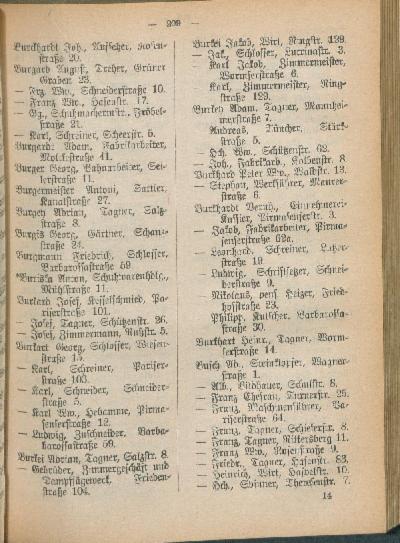 — 209 —
Burckhardt Joh., Aufseher, Rosen-
straße 20.
Burgard August, Dreher, Grüner
Graben 23.
— Frz. Ww., Schneiderstraße 10.
— Franz Ww., Hasenstr. 17.
— Gg., Schuhmachermstr., Fröbel-
straße 21.
— Karl, Schreiner, Scheerstr. 5.
Burgardt Adam, Fabrikarbeiter,
Moltkestraße 41.
Burger Georg, Bahnarbeiter, Sei-
lerstraße 11.
Burgermeister Antoni, Sattler,
Kanalstraße 27.
Burgey Adrian, Tagner, Salz-
straße 8.
Burgis Georg, Gärtner, Schanz-
straße 24.
Burgmann Friedrich, Schlosser,
Barbarossastraße 59.
*Buriska Anton, Schuhwarenhdlg.,
Mühlstraße 11.
Burkard Josef, Kesselschmied, Pa-
riserstraße 101.
— Josef, Tagner, Schützenstr. 26.
— Josef, Zimmermann, Ruhstr. 5.
Burkart Georg, Schlosser, Wiesen-
straße 15.
— Karl, Schreiner, Pariser-
straße 103.
— Karl, Schneider, Schneider-
straße 5.
— Karl Ww., Hebamme, Pirma-
senserstraße 12.
— Ludwig, Zuschneider, Barba-
rossastraße 59.
Burkei Adrian, Tagner, Salzstr. 8.
— Gebrüder, Zimmergeschäft und
Dampfsägewerk, Frieden-
straße 104.
Burkei Jakob, Wirt, Ringstr. 129.
— Jak., Schlosser, Luccinastr. 3.
— Karl Jakob, Zimmermeister,
Wormserstraße 6.
— Karl, Zimmermeister, Ring-
straße 129.
Burkey Adam, Tagner, Mannhei-
merstraße 7.
— Andreas, Tüncher,
straße 5.
— Hch. Ww., Schützenstr. 62.
— Joh., Fabrikarb., Kolbenstr. 8
Burkhard Peter Ww., Waltstr. 13.
— Stephan, Werkführer, Maurer-
straße 6.
Burkhardt Bernh., Einnehmerei-
Kassier, Pirmasenserstr. 3.
— Jakob, Fabrikarbeiter, Pirma-
senserstraße 62a.
— Leonhard, Schreiner,
straße 19
— Ludwig, Schriftsetzer, Schnei-
derstraße 9.
— Nikolaus, pens. Heizer, Fried-
hofstraße 23.
— Philipp, Kutscher, Barbarossa-
straße 30.
Burkhart Heinr., Tagner, Worm-
serstraße 14.
Busch Ad., Steinklopfer, Wagner-
straße 1.
— Alb., Bildhauer, Schulstr. 8.
— Franz Ehefrau, Turnerstr. 25.
— Franz, Maschinenführer, Pa-
riserstraße 64.
— Franz, Tagner, Schieferstr. 8.
— Franz, Tagner, Rittersberg 11.
— Franz Ww., Rosenstraße 9.
— Friedr., Tagner, Hasenstr. 83.
— Heinrich, Wirt, Haspelstr. 10.
— Hch., Spinner, Theresenstr. 7.
14